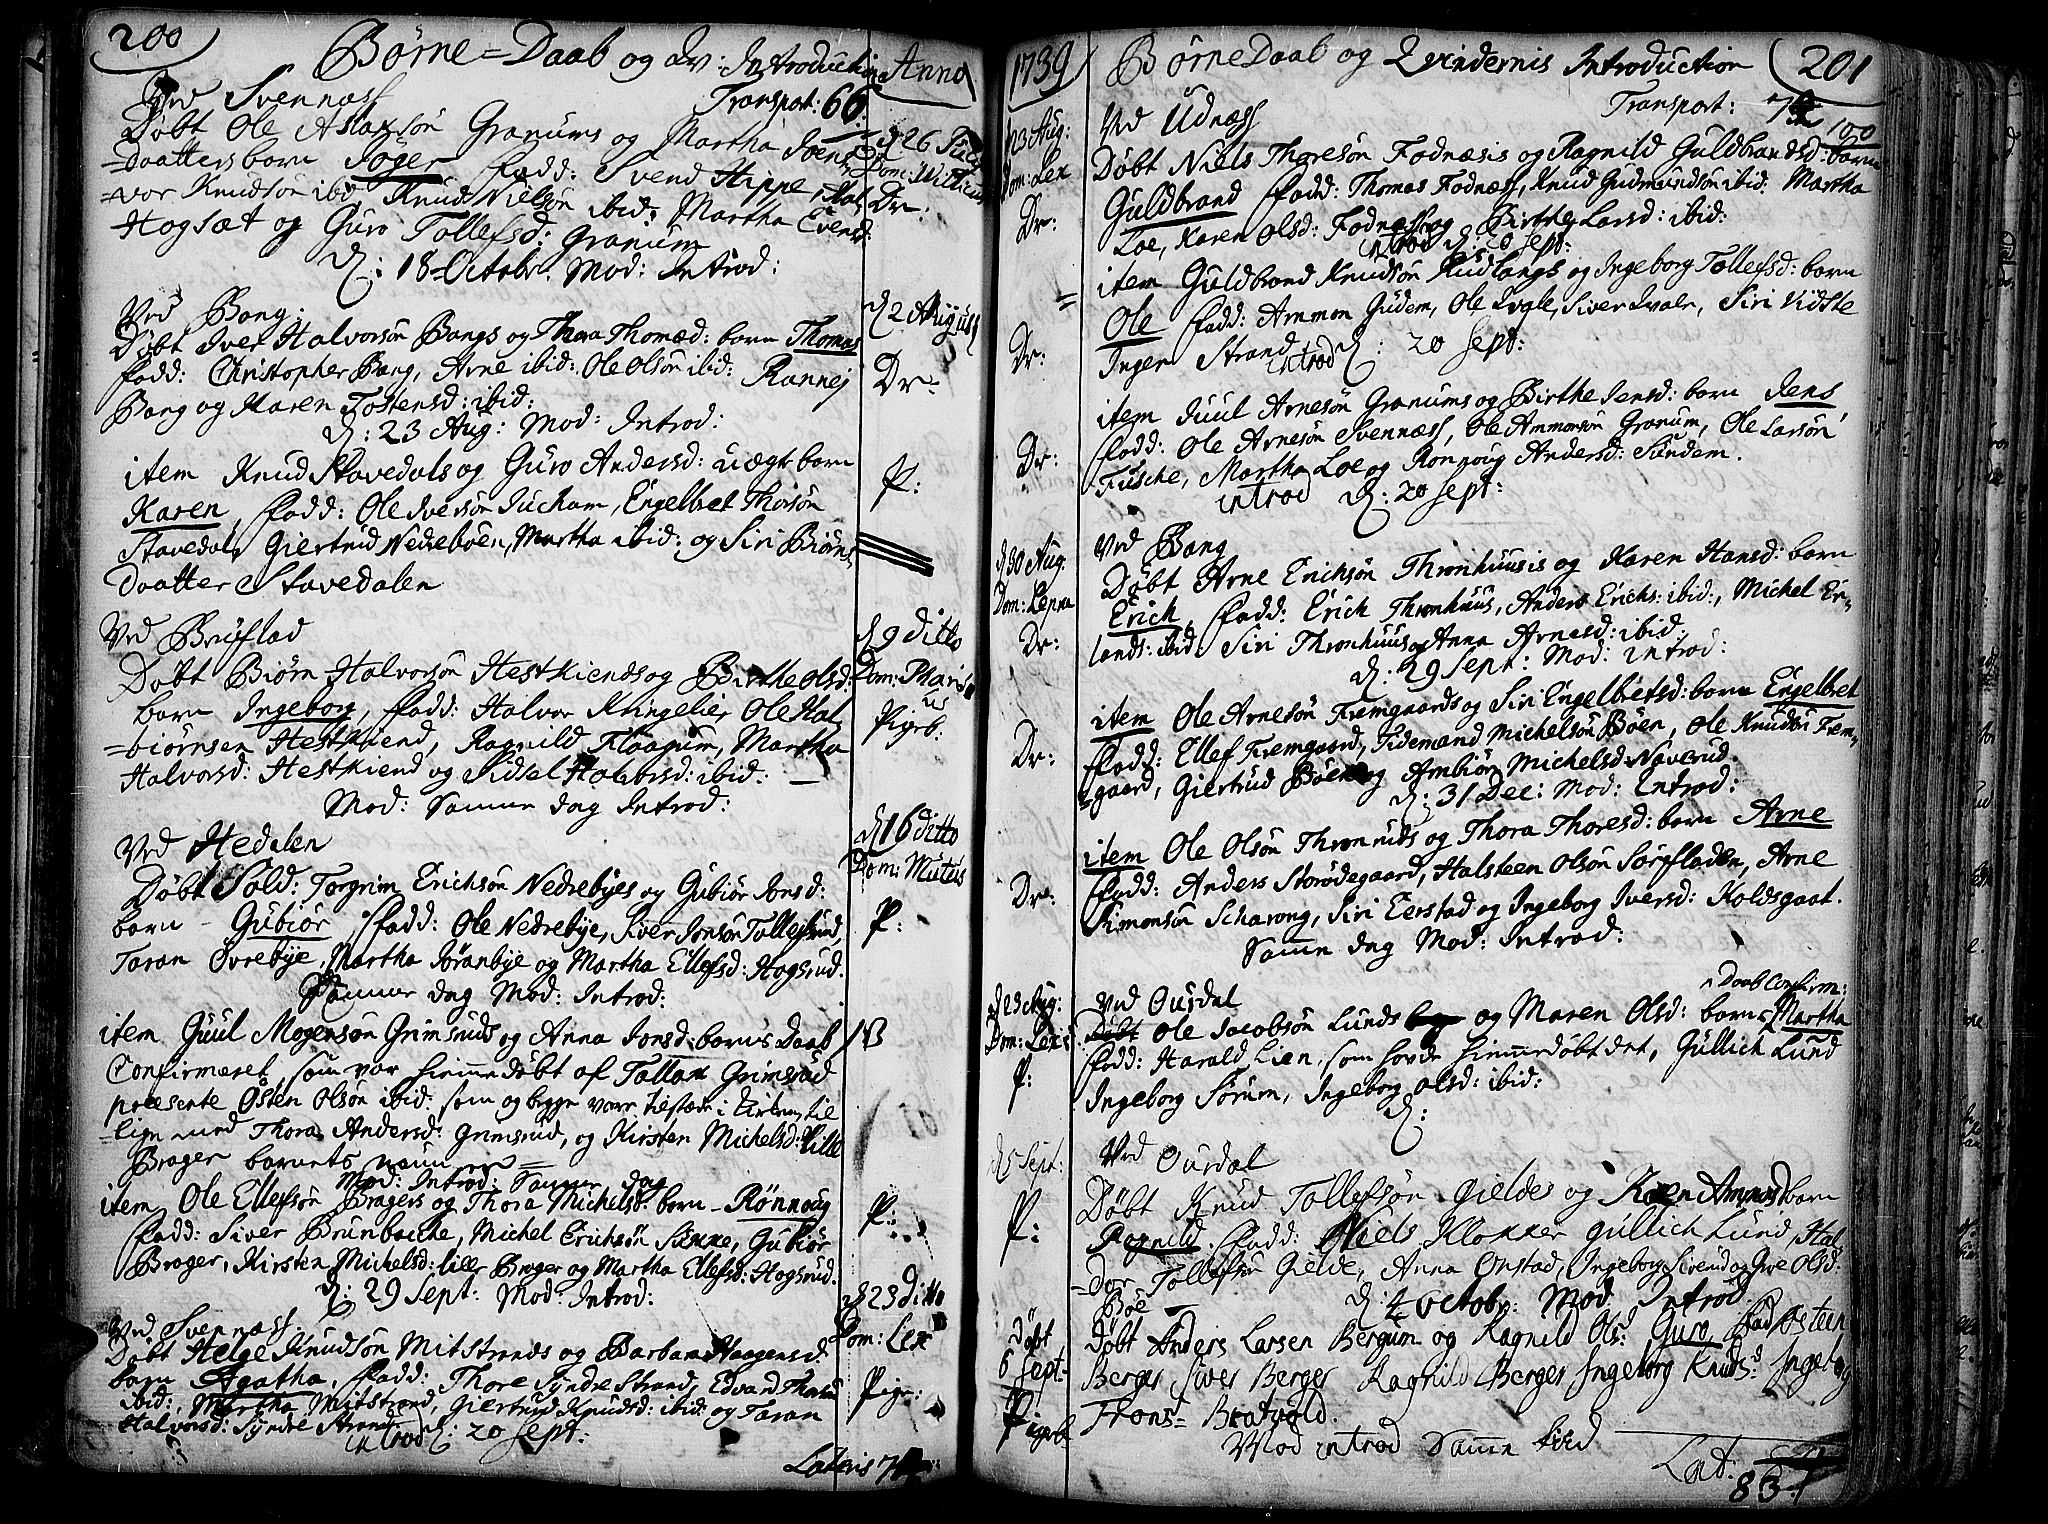 200 Børne=Daab og Qv: Introduction Anno
Ved Svennæss Transport: 66
Døbt Ole Aslaxsøn Granums og Martha Svens
=daatters barn Joger fadd: Svend Hippe, Hal
=vor Knudsøn ibid Knud Nielsøn ibid: Martha Evensd:
Hogsæt og Guro Tollefsd: Granum
d: 18 Octobr. Mod: Introd:
d 26 Julij
Dr:
Ved Bang:
Døbt Iver Halvorsøn Bangs og Thora Thomæd: barn Thomas
fadd: Christopher Bang, Arne ibid: Ole Olsøn ibid: Rannej
Bang og Karen Tostensd: ibid:
d: 23 Aug: Mod: Introd:
d 2 Augusti
Dr:
item Knud Stavedals og Guro Andersd: uægte barn
Karen, fadd: Ole Iversøn Juckam, Engelbret Thorsøn
Stavedal, Giertrud Nedrebøen, Martha ibid: og Siri Biørns
Daatter Stavedalen
P:
Ved Bruflad
Døbt Biørn Halvorsøn Hestkiends og Birthe Olsd:
barn Ingeborg, fadd: Halvor Kringelie, Ole Hal
=biørnsen Hestkiend, Ragnild Flaagum, Martha
Halvorsd: Hestkiend og Sidsel Halvorsd: ibid:
Mod: Samme dag Introd:
d 9 ditto
Dom: Pharisæ
us
Pigeb:
Ved Hedalen
Døbt Sold: Torgrim Erichsøn Nedrebyes og Gubiør Jonsd:
barn - Gubiør, fadd: Ole Nedrebye, Siver Jonsøn Tollefsrud,
Taran Øvrebye, Martha Jøranbye og Martha Ellefsd: Hogsrud.
Samme dag Mod: Introd:
d 16 ditto
Dom: Mutus
P:
item Guul Mogensøn Grimsruds og Anna Jonsd: barns Daab
Confirmeret, som var hiemmedøbt af Tollax Grimsrud
præsente Østen Olsøn ibid: som og begge vare tilstæde i Kirken, til
=lige med Thora Andersd: Grimsrud, og Kirsten Michelsd: Lille
Brager barnets navn
Mod: Introd: Samme dag
item Ole Ellefsøn Bragers og Thora Michelsd: barn - Rønnoug
fadd: Siver Brunbacke, Michel Erichsøn, Gubiør
Brager, Kirsten Michelsd: lille Brager og Martha Ellefsd: Hogsrud.
d: 29 Sept: Mod: Introd:
P:
Ved Svennæss:
Døbt Helge Knudsøn Mitstrands og Barbara Haagensd:
barn Agatha, fadd: Thore Syndre Strand, Edvard
ibid:, Martha Mitstrand, Giertrud Knudsd: ibid: og Taran
Halvorsd: Syndre Strand
introd d: 20 Sept:
d 23 ditto
Dom: Lex
Pige:
Lateris
1739 Børne Daab og Qvindernis Introduction 201
Ved Udnæss Transport:
100
Døbt Niels Thoresøn Fodnæsis og Ragnild Guldbrandsd: barn
Guldbrand fadd: Thomas Fodnæss, Knud Gudmundsøn ibid: Martha
Loe, Karen Olsd: Fodnæss og Birthe Larsd: ibid:
introd d: 20 Sept:
23 Aug:
Dom: Lex
Dr:
item Guldbrand Knudsøn Rudlangs og Ingeborg Tollefsd: barn
Ole fadd: Ammon Gudem, Ole, Siver, Siri Vidste
Inger Strand introd d: 20 Sept:
Dr:
item Juul Arnesøn Granums og Birthe Jensd: barn Jens,
fadd: Ole Arnesøn Svennæss, Ole Ammonsøn Granum, Ole Larsøn
Fusche, Martha Loe og Ronnoug Andersd: Sundem.
introd d: 20 Sept:
Dr:
Ved Bang
Døbt Arne Erichsøn Thronhuusis og Karen Hansd: barn
Erich, fadd: Erich Thronhuus, Anders Erichs: ibid:, Michel Er=
lands: ibid Siri Thronhuus og Anna Arnesd: ibid.
d: 29 Sept: Mod: introd:
d 30 Aug
Dom: Lepra
Dr:
item Ole Arnesøn Fremgaards og Siri Engelbretsd: barn Engelbret
fadd: Ellef Fremgaard, Tidemand Michelsøn Bøen, Ole Knudsøn Frem=
=gaard, Giertrud Bøen og Ambiør Michelsd: Naverud.
d: 31 Dec: Mod: Entrod:
Dr:
item Ole Olsøn Thronruds og Thora Thoresd: barn Arne
fadd: Anders Storødegaard, Halsteen Olsøn Sørfladen, Arne
Simonsøn, Siri Eerstad og Ingeborg Iversd: Koldsgaat.
Samme dag Mod: Introd:
Dr:
Ved Ourdal Daab Confirm:
Døbt Ole Jacobsøn Lunds og Maren Olsd: barns Martha
fadd: Harald Lien, som hafde hiemmedøbt det, Gullich Lund
Ingeborg Sørum, Ingeborg Olsd: ibid:
d:
d 23 Aug:
Dom: Lex
P:
Ved Ourdal
Døbt Knud Tollefsøn Gieldes og Karen Ammonsd, barn
Ragnild. fadd: Niels Klokker Gullich Lund, Hal
=dor Tollefsøn Gielde, Anna Onstad, Ingeborg og Olsd:
Bøe d: 4 Octobr: Mod Introd
d 5 Sept:
P:
Døbt Anders Larsen Bergum og Ragnild Olsd Guro, fad Østeen
Berger Siver Berger Ragnild Berger Ingeborg Knuds: Ingeborg
Thons= Bratvold.
Mod introd Samme tiid
Døbt
6 Sept=
Pigeb
Lat:
83